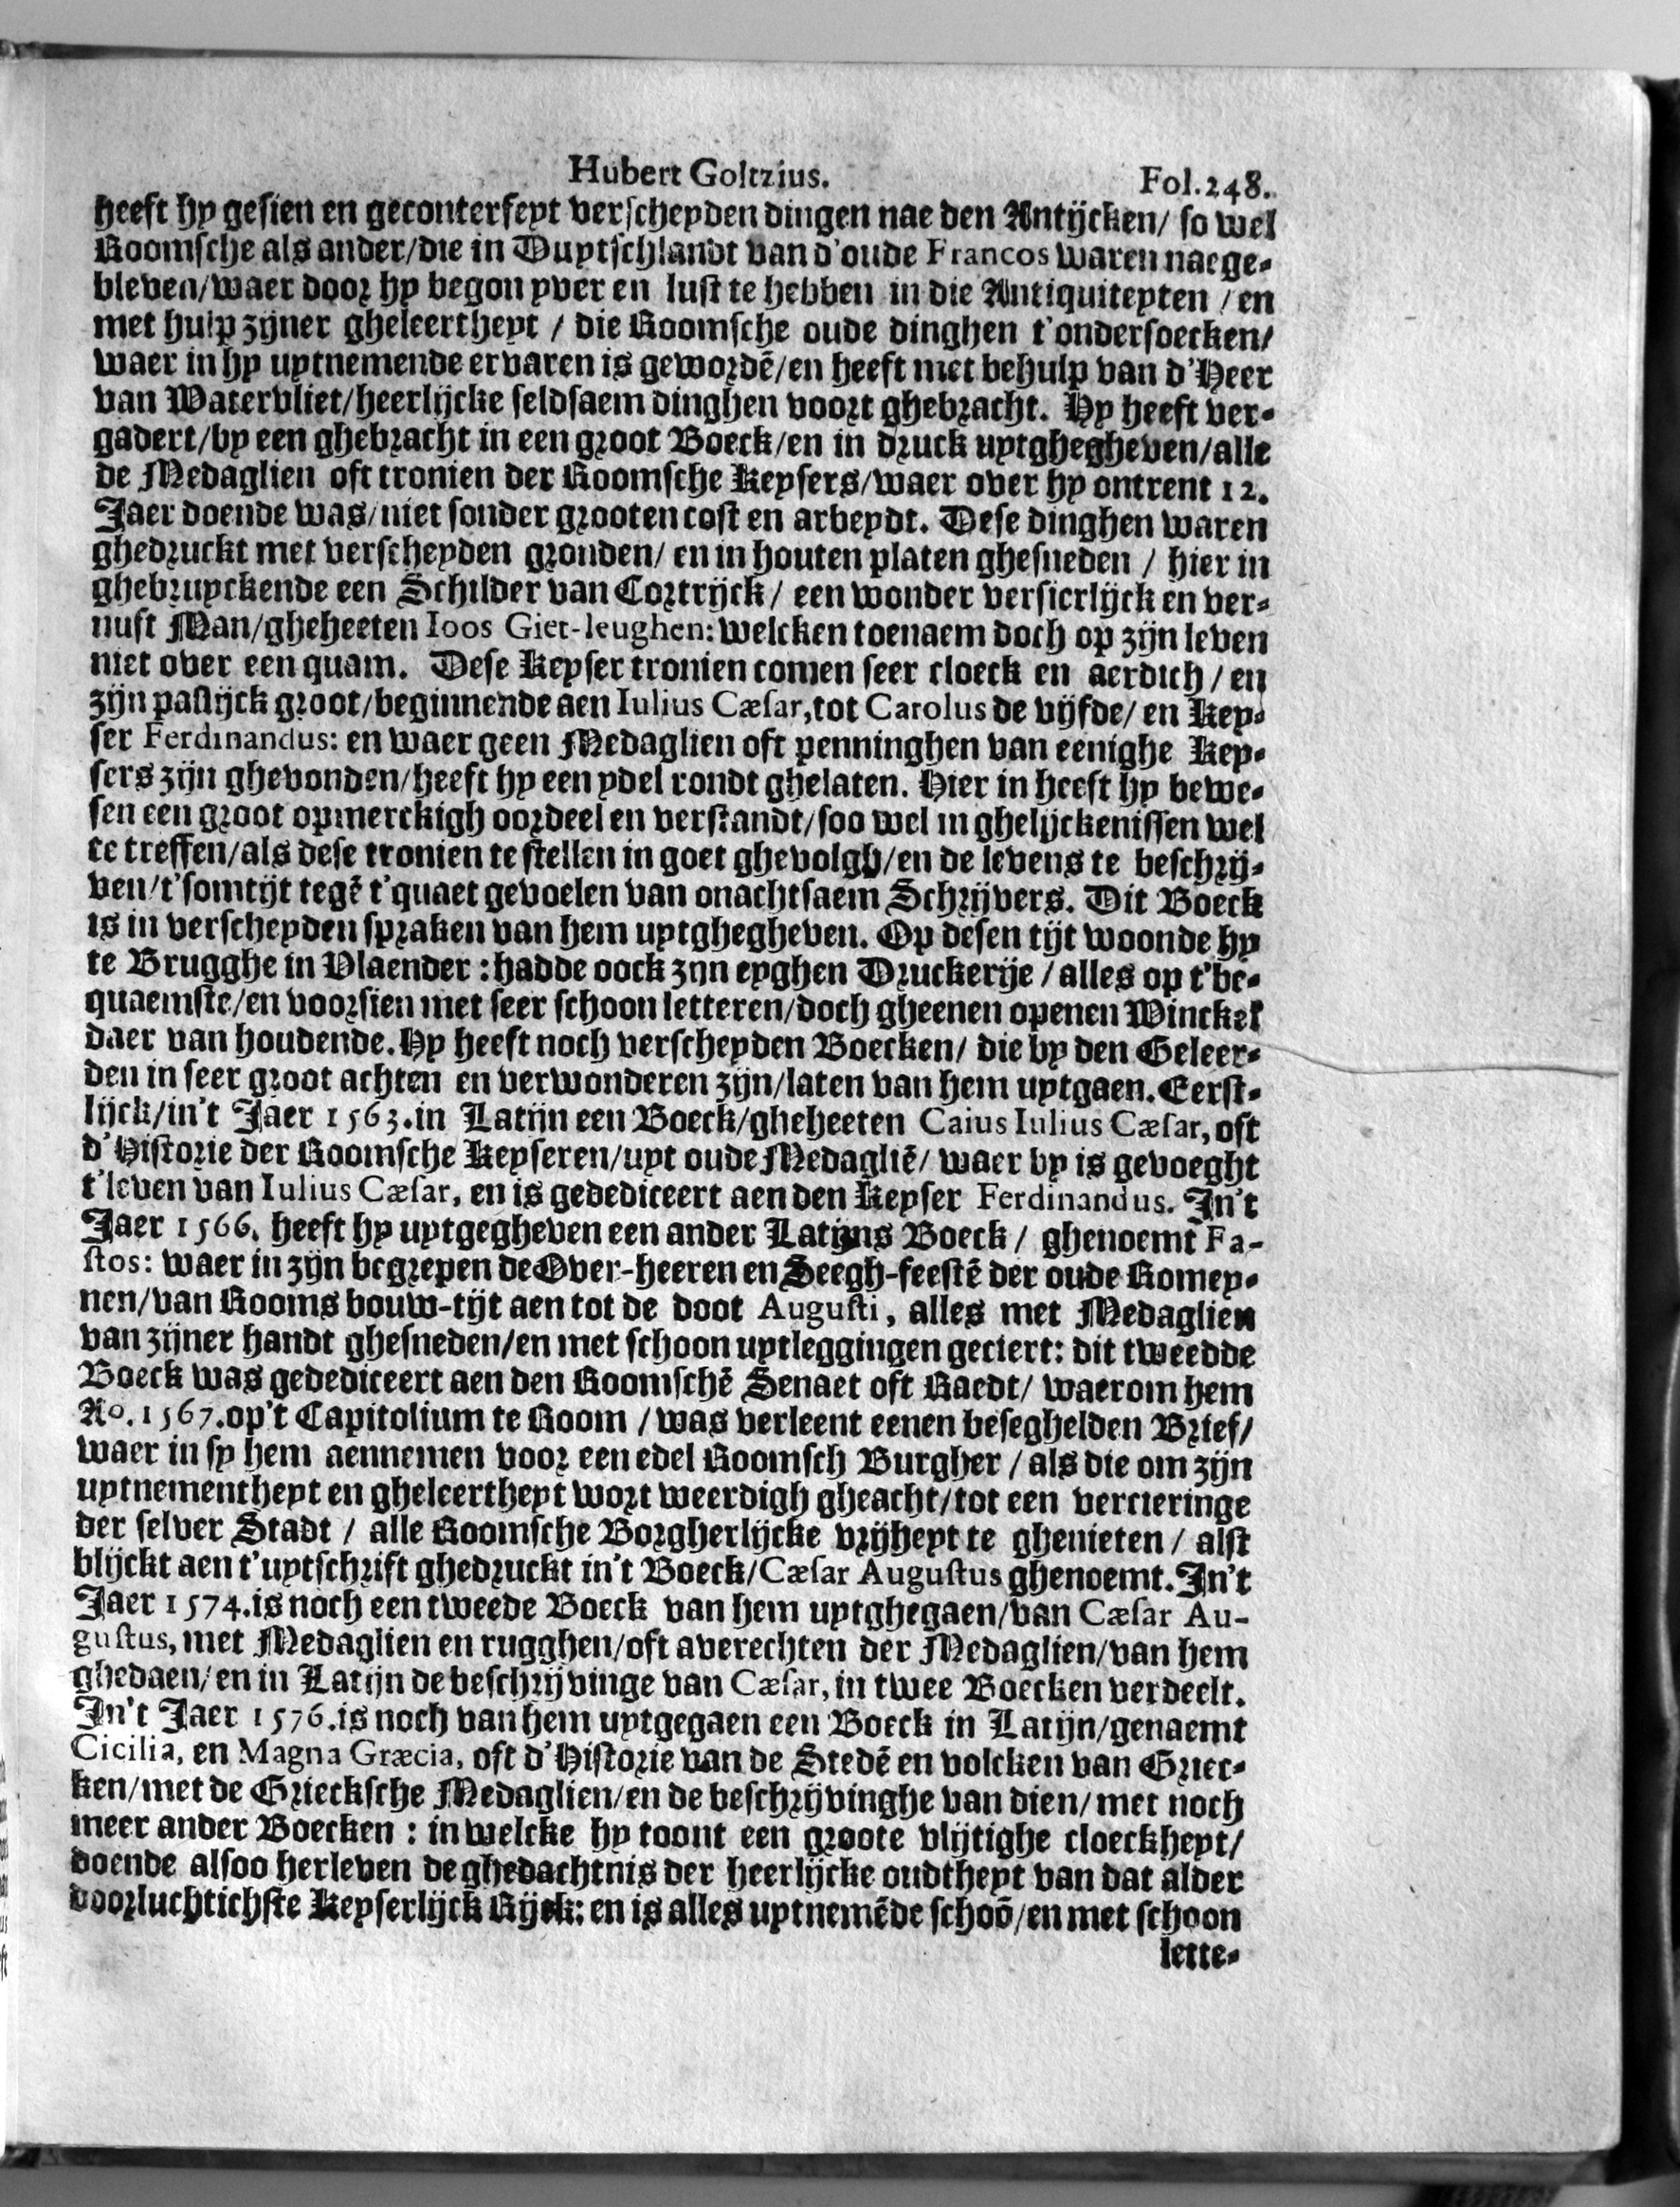 Hubert Goltzius. Fol.248.
heeft hy gesien en geconterfeyt verscheyden dingen nae den Antijcken/ so wel
Roomsche als ander/die in Duytschlandt van d'oude Francos waren naege-
bleven/waer door hy begon yver en lust te hebben in die Antiquiteyten / en
met hulp zijner gheleertheyt / die Roomsche oude dinghen t'ondersoecken/
waer in hy uytnemende ervaren is gewordē/en heeft met behulp van d'Heer
van Watervliet/heerlijcke seldsaem dinghen voort ghebracht. Hy heeft ver-
gadert/by een ghebracht in een groot Boeck/en in druck uytghegheven/alle
de Medaglien oft tronien der Roomsche Keysers/waer over hy ontrent 12.
Jaer doende was/niet sonder grooten cost en arbeydt. Dese dinghen waren
ghedruckt met verscheyden gronden/ en in houten platen ghesneden / hier in
ghebruyckende een Schilder van Cortrijck/ een wonder versierlijck en ver-
nust Man/gheheeten Ioos Giet-leughen: welcken toenaem doch op zijn leven
niet over een quam. Dese Keyser tronien comen seer cloeck en aerdich/ en
zijn paslijck groot/beginnende aen Iulius Cæsar, tot Carolus de vijfde/ en Key-
ser Ferdinandus: en waer geen Medaglien oft penninghen van eenighe Key-
sers zijn ghevonden/heeft hy een ydel rondt ghelaten. Hier in heeft hy bewe-
sen een groot opmerckigh oordeel en verstandt/soo wel in ghelijckenissen wel
te treffen/als dese tronien te stellen in goet ghevolgh/en de levens te beschrij-
ven/t'somtijt tegē t'quaet gevoelen van onachtsaem Schrijvers. Dit Boeck
is in verscheyden spraken van hem uytghegheven. Op desen tijt woonde hy
te Brugghe in Vlaender : hadde oock zijn eyghen Druckerije / alles op t'be-
quaemste/en voorsien met seer schoon letteren/doch gheenen openen Winckel
daer van houdende. Hy heeft noch verscheyden Boecken/ die by den Geleer-
den in seer groot achten en verwonderen zijn/laten van hem uytgaen. Eerst-
lijck/in't Jaer 1563. in Latijn een Boeck/gheheeten Caius Iulius Cæsar, oft
d'Historie der Roomsche Keyseren/uyt oude Medagliē/ waer by is gevoeght
t'leven van Iulius Cæsar, en is gedediceert aen den Keyser Ferdinandus. In't
Jaer 1566. heeft hy uytgegheven een ander Latijns Boeck/ ghenoemt Fa-
stos: waer in zijn begrepen de Over-heeren en Seegh-feestē der oude Romey-
nen/van Rooms bouw-tijt aen tot de doot Augusti, alles met Medaglien
van zijner handt ghesneden/en met schoon uytleggingen geciert: dit tweedde
Boeck was gedediceert aen den Roomschē Senaet oft Raedt/ waerom hem
Ao. 1567. op't Capitolium te Room / was verleent eenen beseghelden Brief/
waer in sy hem aennemen voor een edel Roomsch Burgher / als die om zijn
uytnementheyt en gheleertheyt wort weerdigh gheacht/tot een vercieringe
der selver Stadt / alle Roomsche Borgherlijcke vrijheyt te ghenieten / alst
blijckt aen t'uytschrift ghedruckt in't Boeck/Cæsar Augustus ghenoemt. In't
Jaer 1574. is noch een tweede Boeck van hem uytghegaen/van Cæsar Au-
gustus, met Medaglien en rugghen/oft averechten der Medaglien/van hem
ghedaen/ en in Latijn de beschrijvinge van Cæsar, in twee Boecken verdeelt.
In't Jaer 1576. is noch van hem uytgegaen een Boeck in Latijn/genaemt
Cicilia, en Magna Græcia, oft d'Historie van de Stedē en volcken van Griec-
ken/met de Griecksche Medaglien/en de beschrijvinghe van dien/ met noch
meer ander Boecken : in welcke hy toont een groote vlijtighe cloeckheyt/
doende alsoo herleven de ghedachtnis der heerlijcke oudtheyt van dat alder
doorluchtichste Keyserlijck Rijck: en is alles uytnemēde schoō/en met schoon
lette-